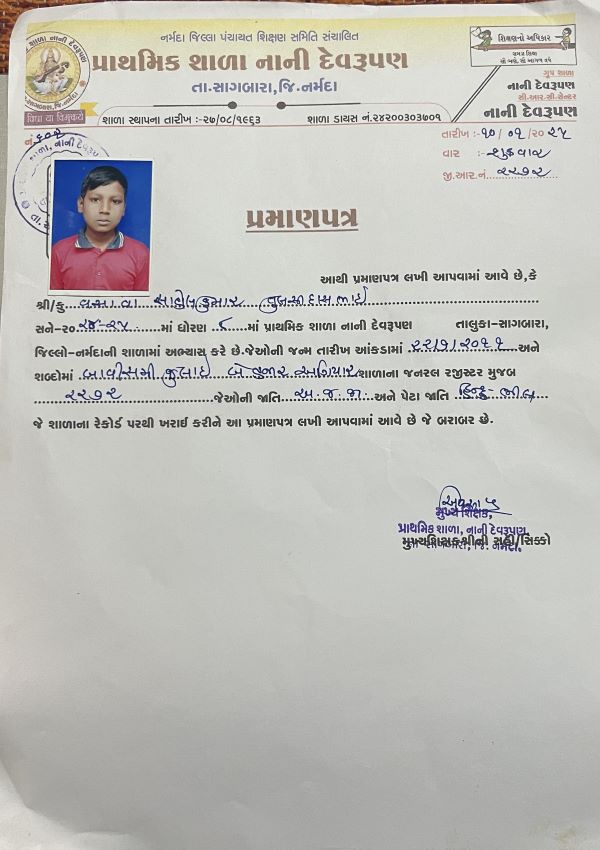 નર્મદા જિલ્લા પંચાયત શિક્ષણ સમિતિ સંચાલિત
પ્રાથમિક શાળા નાની દેવરૂપણ
તા.સાગબારા,જિ.નર્મદા
વિદ્યા યા વિમુક્તયે
શિક્ષણનો અધિકાર
સમગ્ર શિક્ષા
સૌ ભણે, સૌ આગળ વધે
ગૃપ શાળા
નાની દેવરૂપણ
સી.આર.સી.સેન્ટર
નાની દેવરૂપણ
શાળા સ્થાપના તારીખ :-૨૭/૦૮/૧૯૬૩ શાળા ડાયસ નં.૨૪૨૦૦૩૦૩૭૦૧
નં.૬૦૨
તારીખ :-૧૦/૦૧/૨૦૨૫
વાર :-શુક્રવાર
જી.આર.નં.૨૨૭૨
પ્રમાણપત્ર
આથી પ્રમાણપત્ર લખી આપવામાં આવે છે,કે
શ્રી/કુ.વસાવા સાહિલકુમાર તુલસીદાસભાઇ
સને-૨૦૨૪-૨૫માં ધોરણ ૮માં પ્રાથમિક શાળા નાની દેવરૂપણ તાલુકા-સાગબારા,
જિલ્લો-નર્મદાની શાળામાં અભ્યાસ કરે છે.જેઓની જન્મ તારીખ આંકડામાં ૨૨/૭/૨૦૧૧અને
શબ્દોમાં બાવીસમી જુલાઇ બે હજાર અગિયાર શાળાના જનરલ રજીસ્ટર મુજબ
૨૨૭૨જેઓની જાતિ અ.જ.જા.અને પેટા જાતિ હિન્દુ-ભીલ
જે શાળાના રેકોર્ડ પરથી ખરાઈ કરીને આ પ્રમાણપત્ર લખી આપવામાં આવે છે જે બરાબર છે.
મુખ્ય શિક્ષક,
પ્રાથમિક શાળા, નાની દેવરૂપણ,
તા. સાગબારા, જિ. નર્મદા.
મુખ્યશિક્ષકશ્રીની સહી/સિક્કો